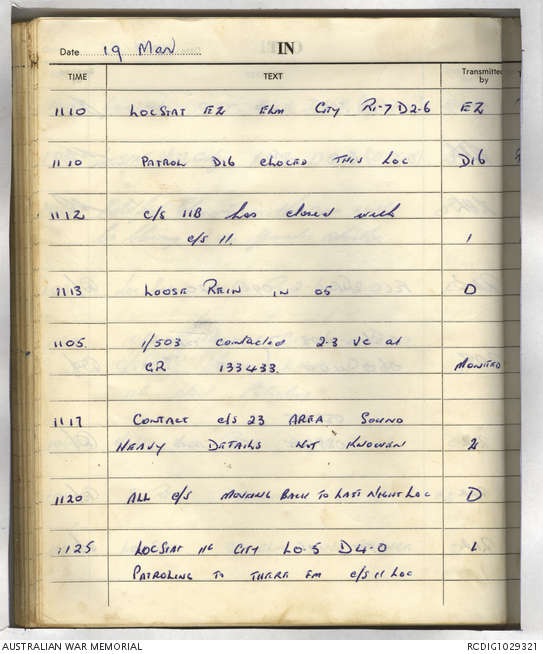 Date 19 Mar IN
TIME TEXT Transmitted by
1110 LOCSTAT EZ ELM CITY R1-7 D2-6 EZ
1110 PATROL D16 CLOCED THIS LOC D16
1112 C/S 11B has closed with
C/S 11. 1
1113 LOOSE REIN IN 05 D
1105 1/503 contacted 2-3 VC at
GR 133433. MONITED
1117 CONTACT C/S 23 AREA SOUND
HEAVY DETAILS NOT KNOWEN 2
1120 ALL C/S MOVING BACK TO LAST NIGHT LOC D
1125 LOCSTAT 11C CITY L0-5 D4-0 1
PATROLING TO THERE FM C/S 11 LOC
AUSTRALIAN WAR MEMORIAL RCDIG1029321